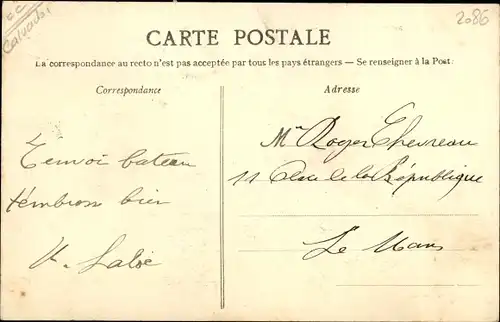 cc
Calvados
2086
CARTE POSTALE
La correspondance au recto n'est pas acceptée par tous les pays étrangers — Se renseigner à la Post:
Correspondance
Adresse
T envoi bateau
t'embrasse bien
Mr Roger Chevreau
11 Place de la République
Le Mans